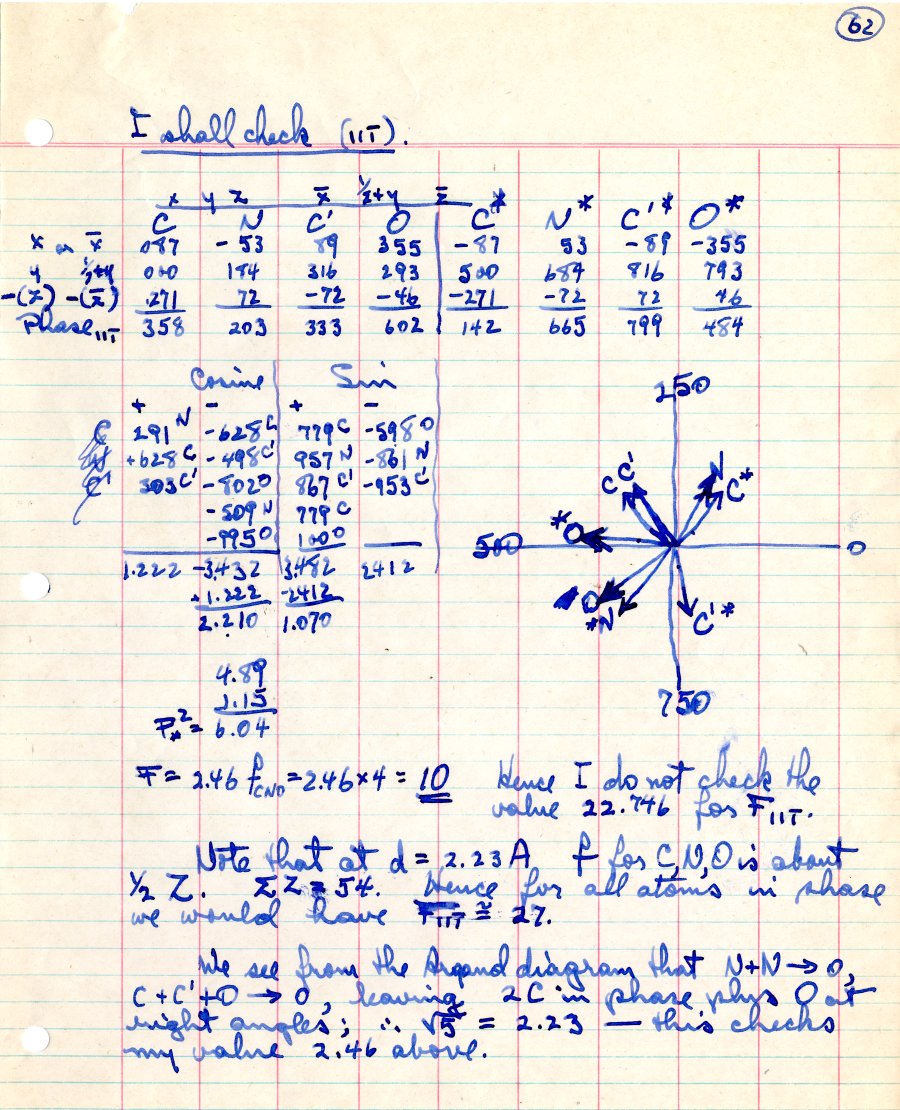 62
I shall check (11T̄).
x y z x̄ ½+y z̄
C N C' O C* N* C'* O*
x or x̄ 087 -53 89 355 -87 53 -89 -355
y ½+y 000 184 316 293 500 684 816 793
-(z) -(z̄) .271 72 -72 -46 -271 -72 72 46
Phase 11T̄ 358 203 333 602 142 665 799 484
Cosine Sin
+ - + -
291 N -628 C 779 C -598 O
+628 C -498 C' 957 N -861 N
303 C' -802 O 867 C' -953 C'
-509 N 779 C
-995 O 100 O
1.222 -3.432 3.482 2412
+1.222 -2412
2.210 1.070
250
C C' N C*
*O
500 0
O *N C'*
750
4.89
1.15
F*² = 6.04
F = 2.46 fCNO = 2.46 × 4 = 10 Hence I do not check the
value 22.746 for F11T̄.
Note that at d = 2.23 A, f for C, N, O is about
½ Z. ΣZ = 54. Hence for all atoms in phase
we would have F11T̄ ≅ 27.
We see from the Argand diagram that N+N → 0,
C + C' + O → 0, leaving 2C in phase plus O at
right angles; ∴ √5 = 2.23 — this checks
my value 2.46 above.